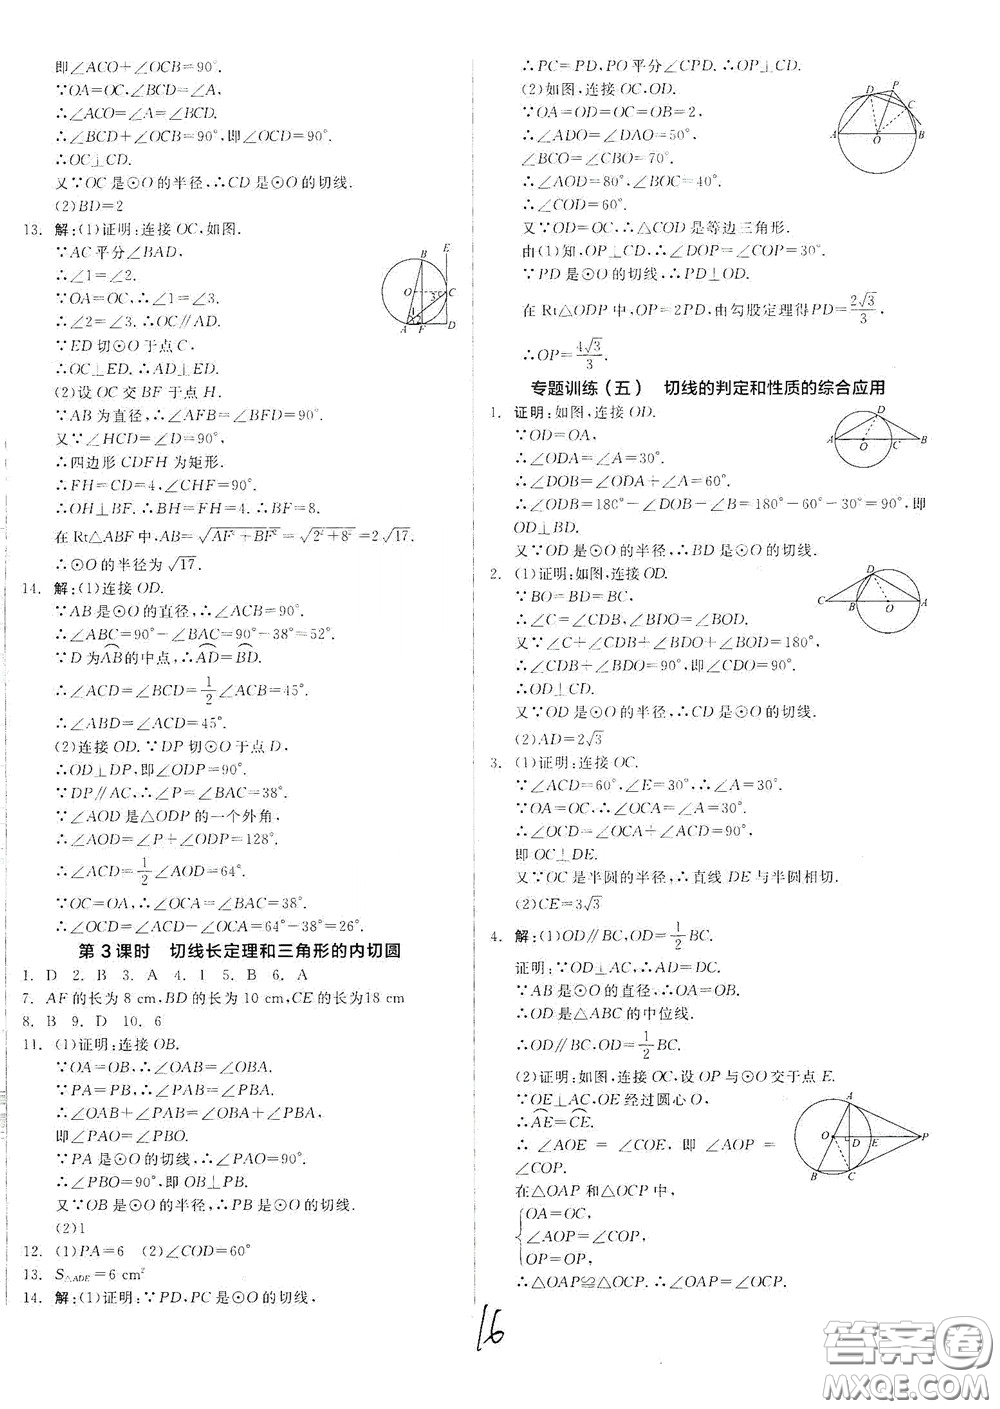 即∠ACO+∠OCB=90°.
∵OA=OC,∠BCD=∠A,
∴∠ACO=∠A=∠BCD.
∴∠BCD+∠OCB=90°,即∠OCD=90°.
∴OC⊥CD.
又∵OC是⊙O的半径,∴CD是⊙O的切线.
(2)BD=2
13. 解:(1)证明:连接OC,如图.
∵AC平分∠BAD,
∴∠1=∠2.
∵OA=OC,∴∠1=∠3.
∴∠2=∠3.∴OC∥AD.
∵ED切⊙O于点C,
∴OC⊥ED.∴AD⊥ED.
(2)设OC交BF于点H.
∵AB为直径,∴∠AFB=∠BFD=90°.
又∵∠HCD=∠D=90°,
∴四边形CDFH为矩形.
∴FH=CD=4,∠CHF=90°.
∴OH⊥BF.∴BH=FH=4.∴BF=8.
在Rt△ABF中,AB=√(AF²+BF²)=√(2²+8²)=2√17.
∴⊙O的半径为√17.
14. 解:(1)连接OD.
∵AB是⊙O的直径,∴∠ACB=90°.
∴∠ABC=90°-∠BAC=90°-38°=52°.
∵D为AB的中点,∴AD=BD.
∴∠ACD=∠BCD=1/2∠ACB=45°.
∴∠ABD=∠ACD=45°.
(2)连接OD.∵DP切⊙O于点D,
∴OD⊥DP,即∠ODP=90°.
∵DP∥AC,∴∠P=∠BAC=38°.
∵∠AOD是△ODP的一个外角,
∴∠AOD=∠P+∠ODP=128°.
∴∠ACD=1/2∠AOD=64°.
∵OC=OA,∴∠OCA=∠BAC=38°.
∴∠OCD=∠ACD-∠OCA=64°-38°=26°.
第3课时 切线长定理和三角形的内切圆
1. D 2. B 3. A 4. 1 5. B 6. A
7. AF的长为8 cm,BD的长为10 cm,CE的长为18 cm
8. B 9. D 10. 6
11. (1)证明:连接OB.
∵OA=OB,∴∠OAB=∠OBA.
∵PA=PB,∴∠PAB=∠PBA.
∴∠OAB+∠PAB=∠OBA+∠PBA.
即∠PAO=∠PBO.
∵PA是⊙O的切线,∴∠PAO=90°.
∴∠PBO=90°,即OB⊥PB.
又∵OB是⊙O的半径,∴PB是⊙O的切线.
(2)1
12. (1)PA=6 (2)∠COD=60°
13. S△ADE=6 cm²
14. 解:(1)证明:∵PD,PC是⊙O的切线,
∴PC=PD,PO平分∠CPD.∴OP⊥CD.
(2)如图,连接OC,OD.
∵OA=OD=OC=OB=2,
∴∠ADO=∠DAO=50°,
∠BCO=∠CBO=70°.
∴∠AOD=80°,∠BOC=40°.
∴∠COD=60°.
又∵OD=OC,∴△COD是等边三角形.
由(1)知,OP⊥CD,∴∠DOP=∠COP=30°.
∵PD是⊙O的切线,∴PD⊥OD.
在Rt△ODP中,OP=2PD,由勾股定理得PD=2√3/3,
∴OP=4√3/3.
专题训练(五) 切线的判定和性质的综合应用
1. 证明:如图,连接OD.
∵OD=OA,
∴∠ODA=∠A=30°.
∴∠DOB=∠ODA+∠A=60°.
∴∠ODB=180°-∠DOB-∠B=180°-60°-30°=90°,即
OD⊥BD.
又∵OD是⊙O的半径,∴BD是⊙O的切线.
2. (1)证明:如图,连接OD.
∵BO=BD=BC,
∴∠C=∠CDB,∠BDO=∠BOD.
又∵∠C+∠CDB+∠BDO+∠BOD=180°,
∴∠CDB+∠BDO=90°,即∠CDO=90°.
∴OD⊥CD.
又∵OD是⊙O的半径,∴CD是⊙O的切线.
(2)AD=2√3
3. (1)证明:连接OC.
∵∠ACD=60°,∠E=30°,∴∠A=30°.
∵OA=OC,∴∠OCA=∠A=30°.
∴∠OCD=∠OCA+∠ACD=90°,
即OC⊥DE.
又∵OC是半圆的半径,∴直线DE与半圆相切.
(2)CE=3√3
4. 解:(1)OD∥BC,OD=1/2BC.
证明:∵OD⊥AC,∴AD=DC.
∵AB是⊙O的直径,∴OA=OB.
∴OD是△ABC的中位线.
∴OD∥BC,OD=1/2BC.
(2)证明:如图,连接OC,设OP与⊙O交于点E.
∵OE⊥AC,OE经过圆心O,
∴AE=CE.
∴∠AOE=∠COE,即∠AOP=
∠COP.
在△OAP和△OCP中,
OA=OC,
∠AOP=∠COP,
OP=OP,
∴△OAP≌△OCP.∴∠OAP=∠OCP.
16
答案圈
MXQE.COM